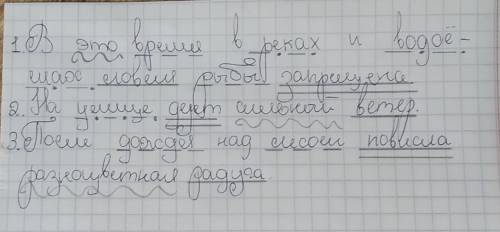 1. В это время в реках и водоё-
мах ловля рыбы запрещена
2. На улице дует сильный ветер.
3. После дождя над лесом повисла
разноцветная радуга.